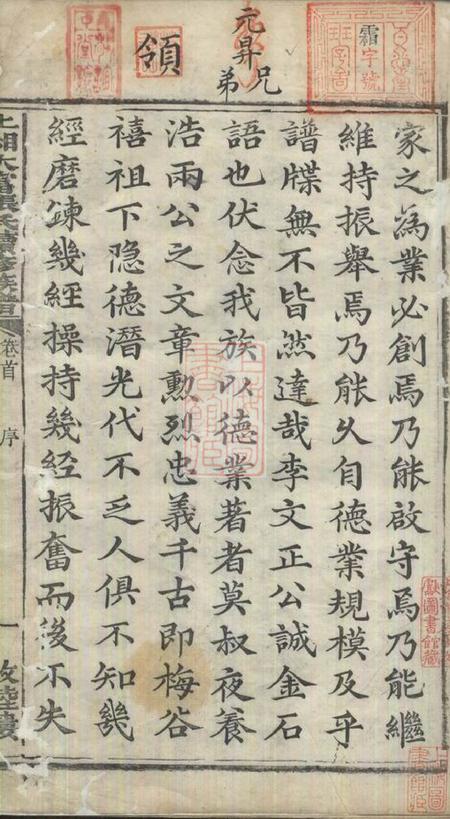 家之為業必創焉乃能啟守焉乃能繼
維持振舉焉乃能久自德業規模及乎
譜牒無不皆然達哉李文正公誠金石
語也伏念我族以德業著者莫叔夜養
浩兩公之文章勳烈忠義千古即梅谷
禧祖下隐德潛光代不乏人俱不知幾
經磨鍊幾經操持幾經振奮而後不失
卷首
序
一
敦睦堂
霜字號
元昇兄弟
領